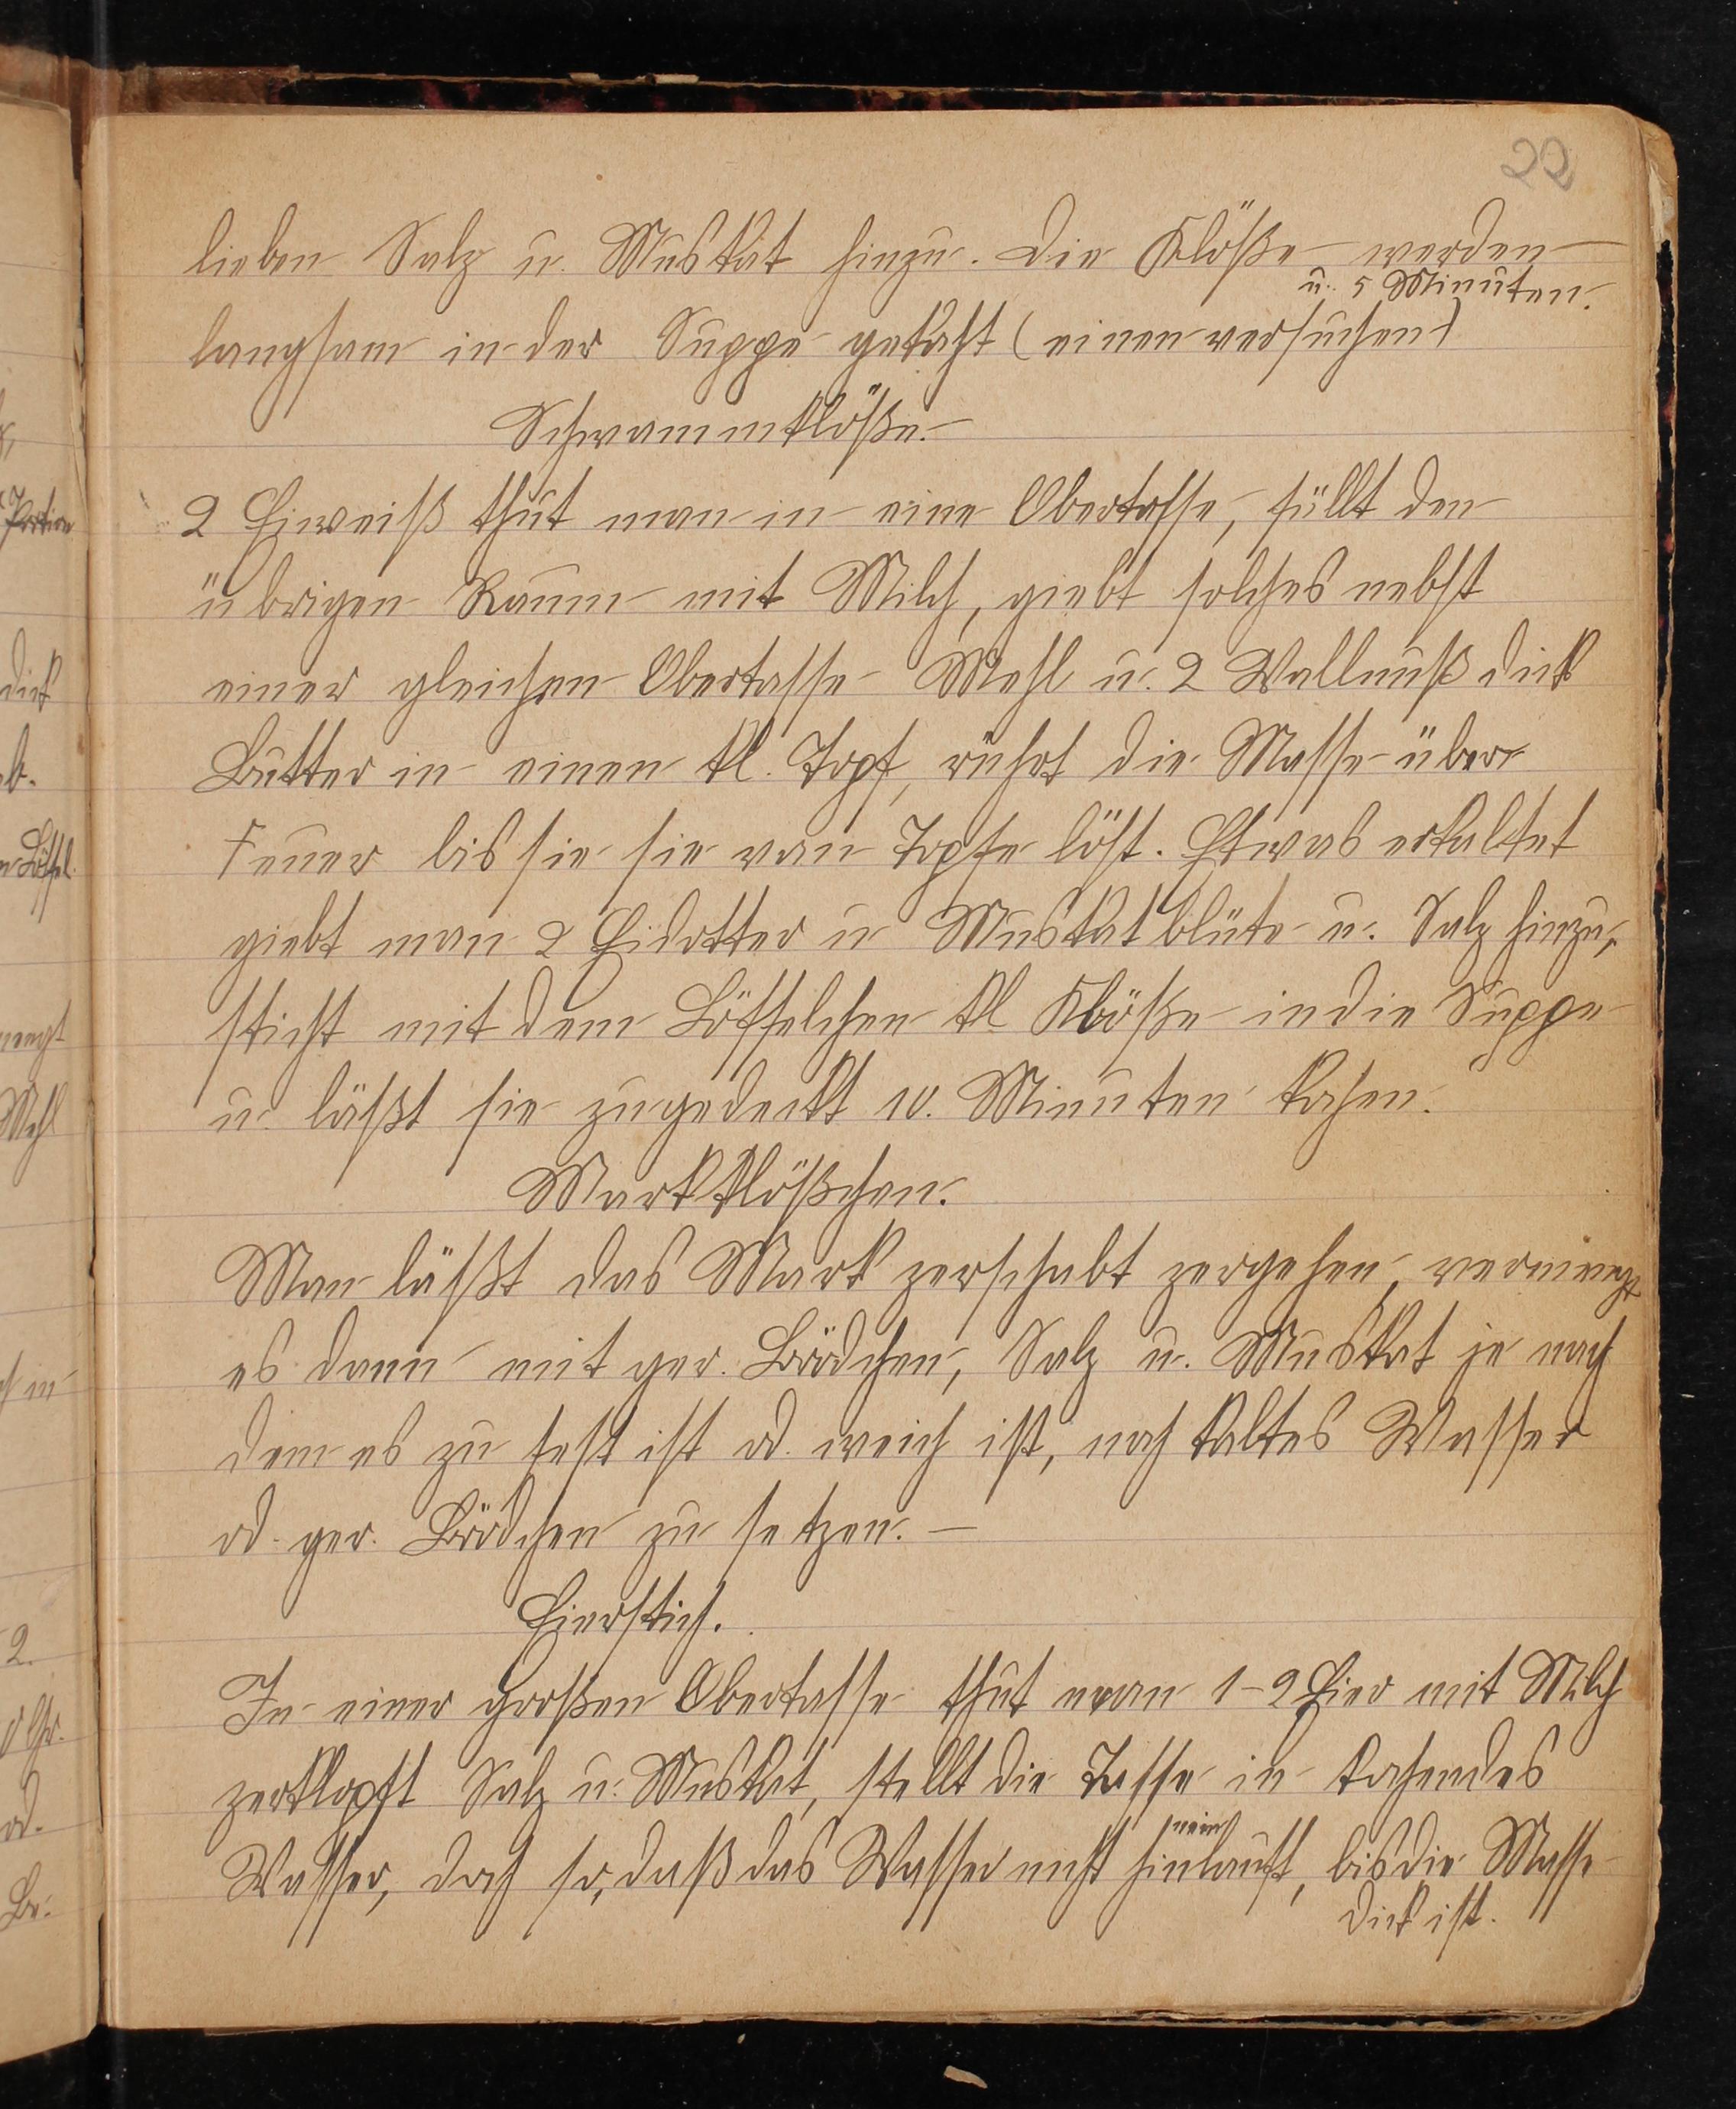 22
lieben Salz u. Muskat hinzu. Die Klöße werden
u. 5 Minuten.
langsam in der Suppe gekocht (einen versuchen)
Schwammklöße.
2 Eiweiß thut man in eine Obertasse, füllt den
übrigen Raum mit Milch, giebt solches nebst
einer gleichen Obertasse Mehl u. 2 Wallnuß dick
Butter in einen kl. Topf, rührt die Masse über
Feuer bis sie sie von Topfe löst. Etwas erkaltet
giebt man 2 Eidotter u Muskatblüte u. Salz hinzu,
sticht mit dem Löffelchen kl Klöße in die Suppe
u. läßt sie zugedeckt 10. Minuten kochen.
Markklößchen.
Man läßt das Mark zerschabt zergehen, vermengt
es dann mit ger. Brödchen, Salz u. Muskat je nach
dem es zu fest ist od. weich ist, noch kaltes Wasser
od. ger. Brödchen zu setzen. —
Eierstich.
In einer großen Obertasse thut man 1-2 Eier mit Milch
zerklopft Salz u. Muskat, stellt die Tasse in kochendes
nein
Wasser, doch so, daß das Wasser nicht hinlauft, bis die Masse
dick ist.